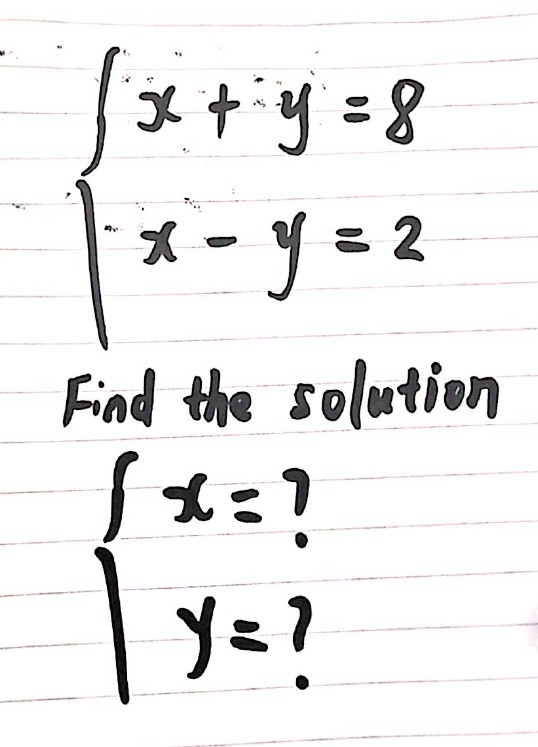 x + y = 8
x - y = 2
Find the solution
x = ?
y = ?